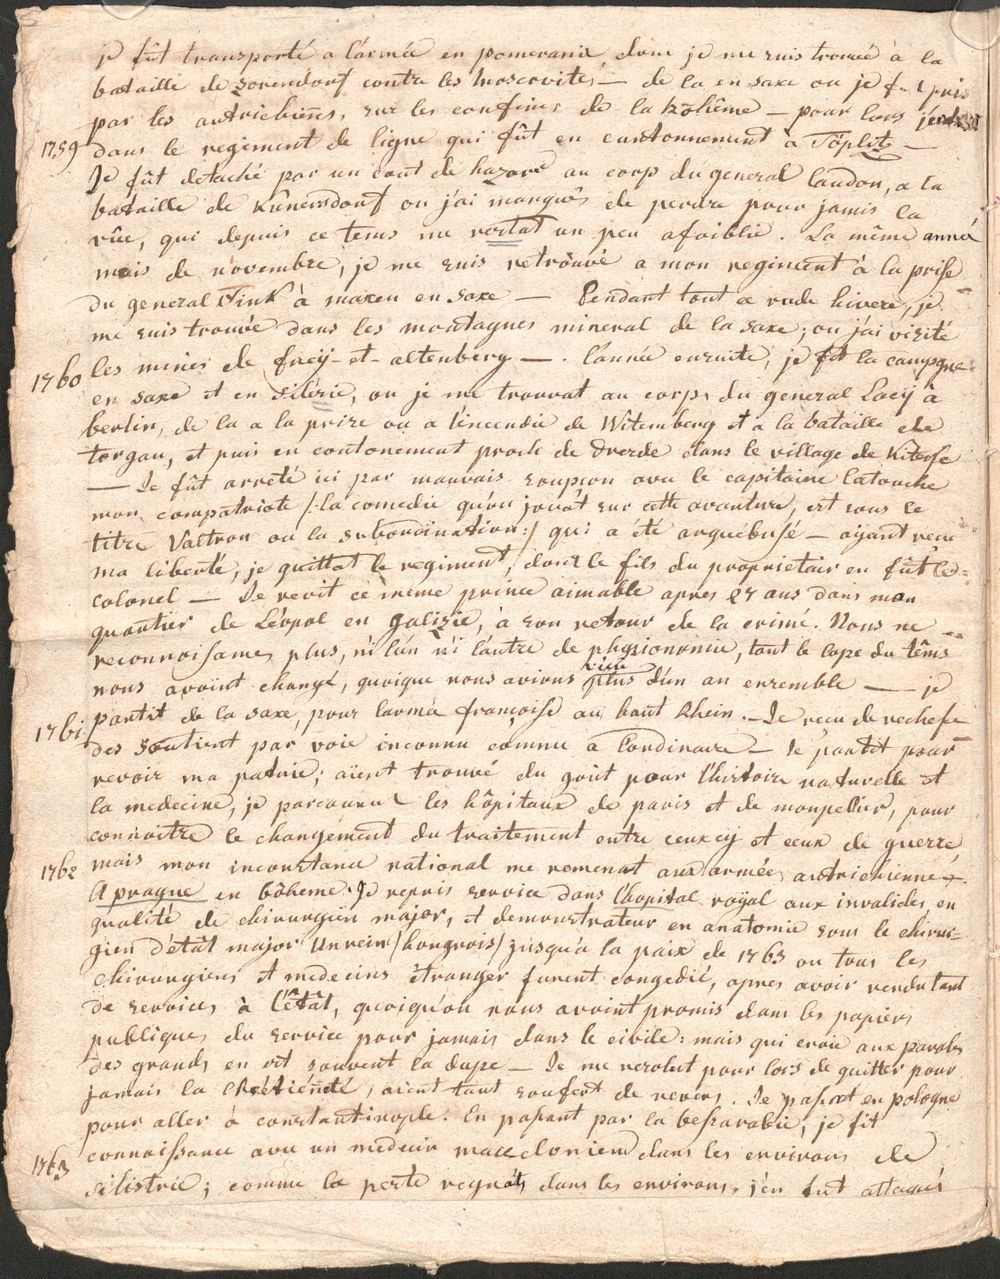 je fût transporté a l'armée en pomeranie, donc je me suis trouvé à la
bataille de Sorendorf contre les Moscovites — de la en saxe ou je f. pris
par les autrichiens, sur les confins de la Bohême — pour lors
1759 dans le regiment de ligne qui fût en cantonnement à Töplitz —
Je fût detaché par un cout de hazard au corp du general laudon, a la
bataille de Kunersdorf ou j'ai manqués de perdre pour jamis la
vûe, qui depuis ce tems me restat un peu afoiblie. La même anné
mois de novembre, je me suis retrouvé a mon regiment à la prise
du general Fink à maxen en saxe — Pendant tout ce rude hivere, je
me suis trouvée dans les montagnes mineral de la saxe; ou j'ai visité
les mines de freÿ-et-altenberg —. l'année ensuite, je fit la campgne
1760 en saxe et en silésie, ou je me trouvat au corps du general Lacÿ à
berlin, de la a la prise ou a l'incendie de Witemberg et a la bataille de
torgau, et puis en contonement proch de Dresde dans le village de
— Je fût arrêté ici par mauvais soupson avec le capitaine latouche
mon compatriote /:la comedie qu'on jouât sur cette avanture, est sous le
titre Valtron ou la subordination:/ qui a été arquebusé — aÿant recu
ma liberté, je quittat le regiment, dont le fils du proprietair en fût le
colonel — Je revit ce même prince aimable apres 27 ans dans mon
quartier de Léopol en galizie, à son retour de la crimé. Nous ne
reconnoisames plus, ni l'un ni l'autre de physionomie, tant le laps du têms
nous avoint changé, quoique nous avions plus d'un an ensemble — je
1761. partit de la saxe, pour l'armee françoise au haut Rhein. — Je recu de rechefe
des soutient par voie inconnu comme a l'ordinaire — Je partit pour
revoir ma patrie; aïent trouvé du goût pour l'histoire naturelle et
la medecine, je parcourut les hôpitaux de paris et de monpellier, pour
connoitre le changement du traitement entre ceux cÿ et ceux de guerre
1762 mais mon inconstance national me remenat aux armées autrichienne
A prague en bôheme. Je repris service dans l'hopital roÿal aux invalides, en
qualité de chirurgien major, et demonstrateur en anatomie sous le chirur-
gien d'etât major Unrein /hongrois/ jusqu'à la paix de 1763 ou tous les
chirurgiens et medecins etranger furent congedié, apres avoir rendu tant
de services à l'êtât, quoiqu'on nous avoint promis dans les papiers
publiques du service pour jamais dans le civile: mais qui croie aux paroles
des grands en est souvent la dupe — Je me resolut pour lors de quitter pour
jamais la chrétienneté, aient tant soufert de revers. Je passat en pologne
pour aller à constantinople. En passant par la bessarabie, je fit
1763 connoissance avec un medecin macedonien dans les environs de
silistrie; comme la peste regnat dans les environs, j'en fut attaqué